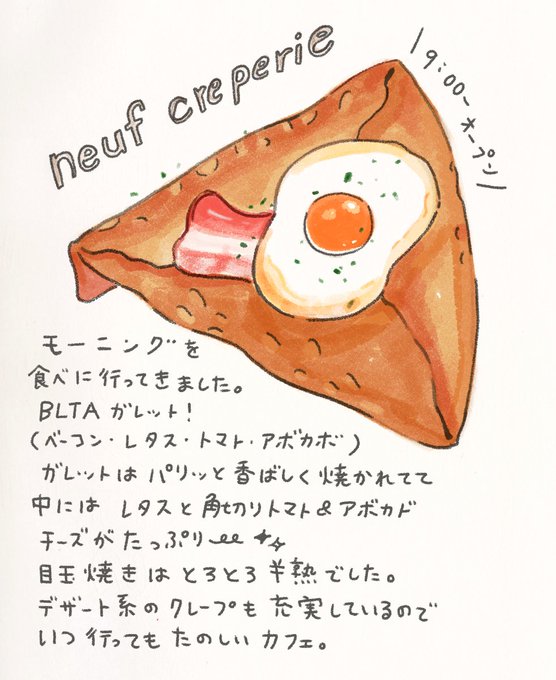 neuf creperie
\9:00~オープン/
モーニングを
食べに行ってきました。
BLTAガレット!
(ベーコン・レタス・トマト・アボカボ)
ガレットはパリッと香ばしく焼かれてて
中にはレタスと角切りトマト&アボカド
チーズがたっぷり
目玉焼きはとろとろ半熟でした。
デザート系のクレープも充実しているので
いつ行ってもたのしいカフェ。